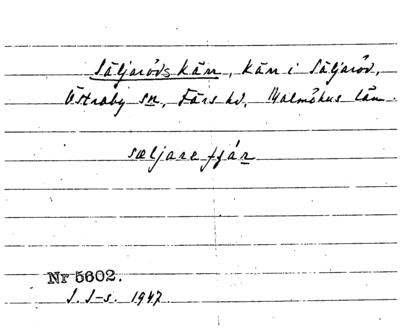 Säljaröds kän, kän i Säljaröd,
Östraby sn, Färs hd, Malmöhus län.
sæljare fjár
Nr 5602.
J. J-s. 1947